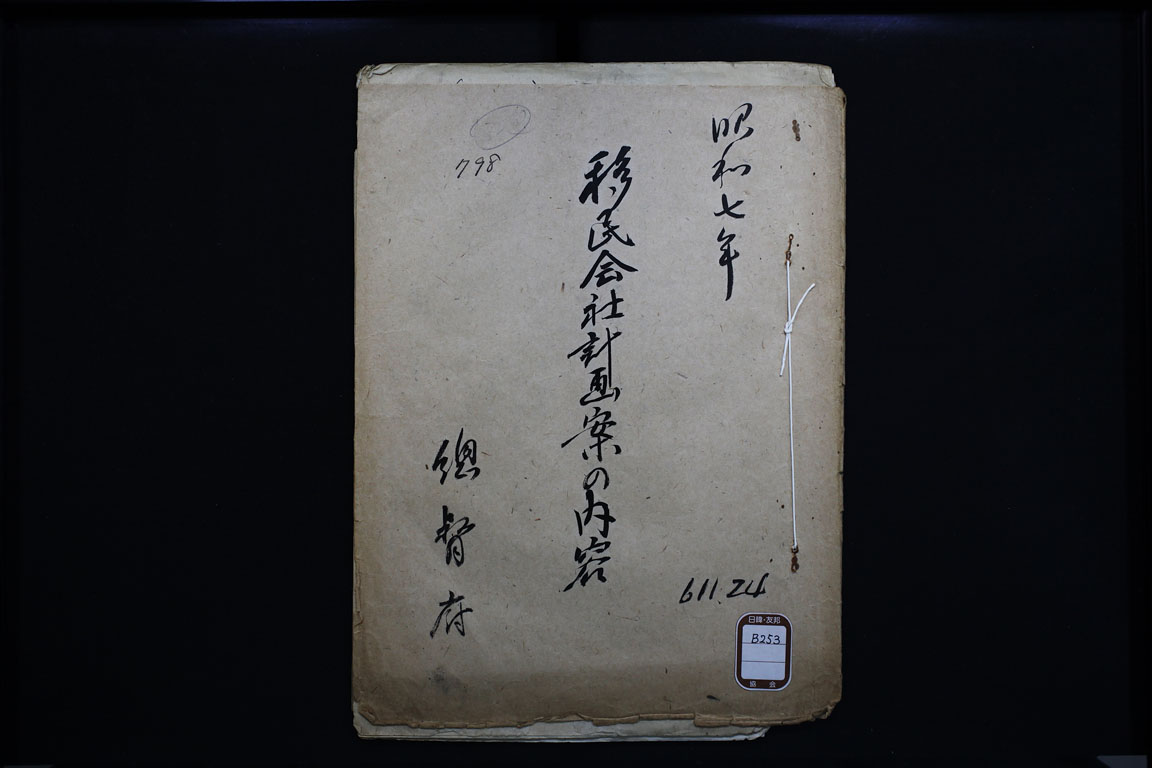 昭和七年
移民会社計画案の内容
總督府
798
611.24
日韓・友邦
B253
協会